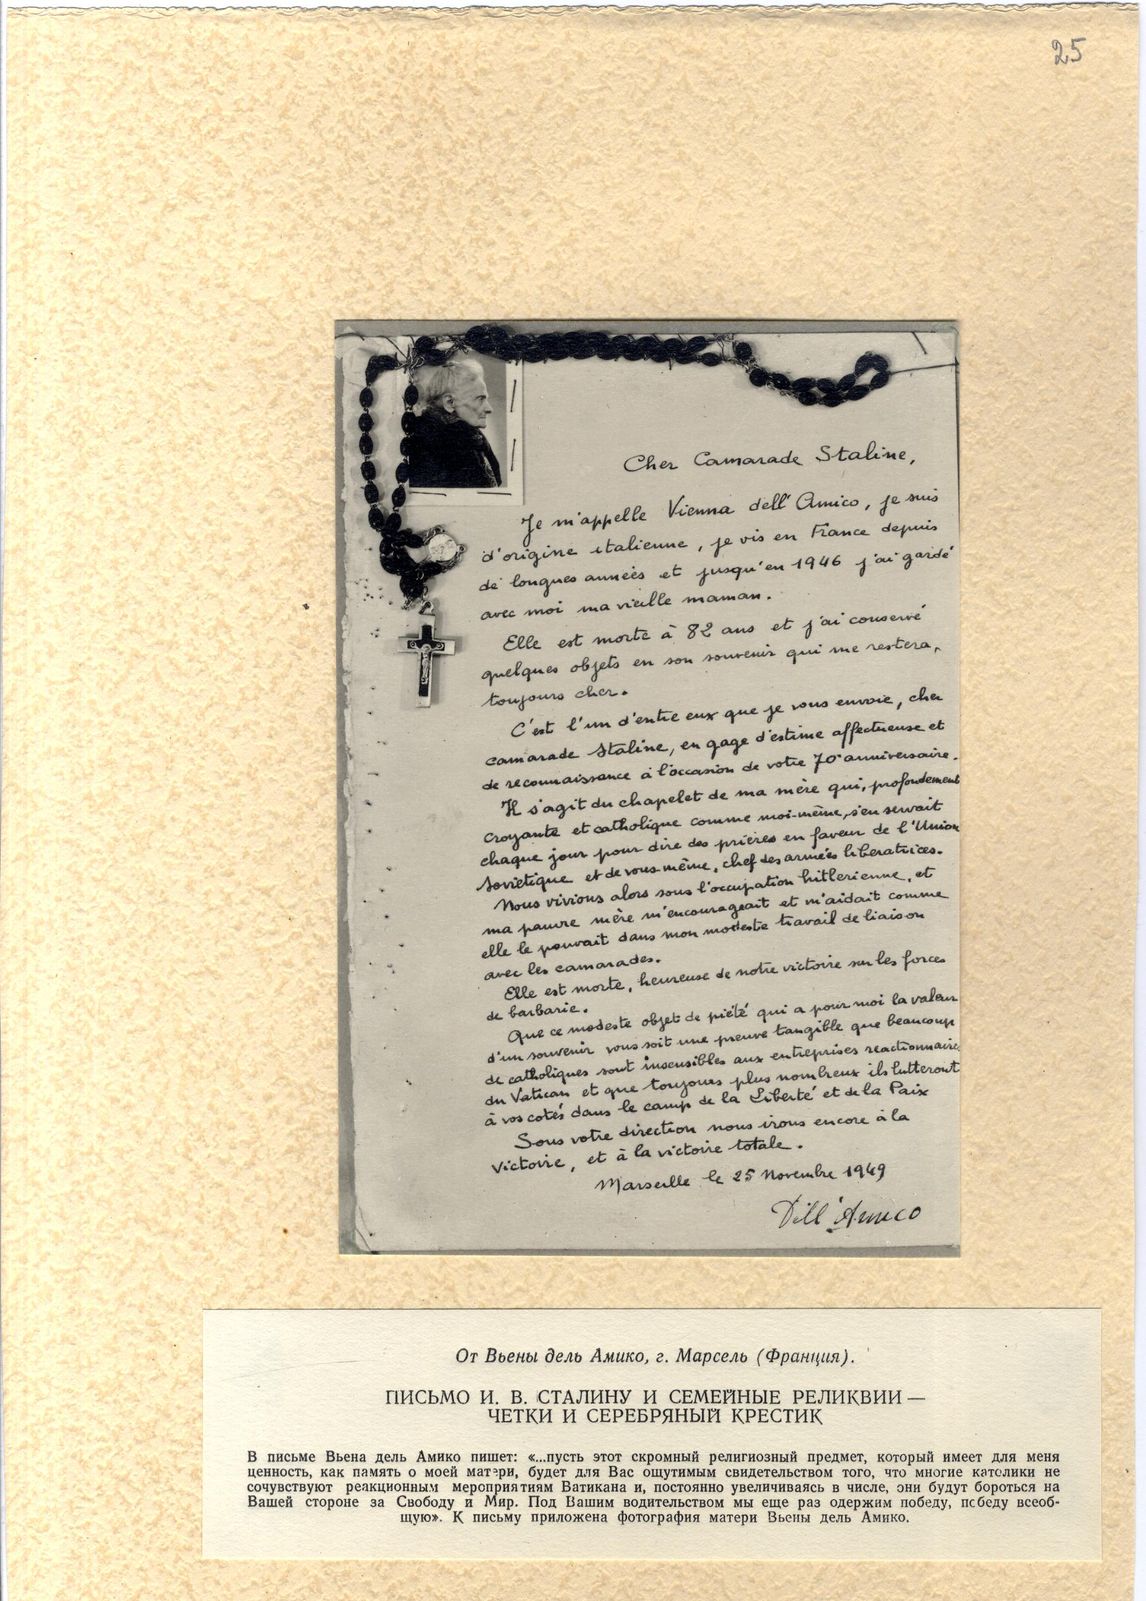 25
Cher Camarade Staline,
Je m'appelle Vienna dell'Amico, je suis
d'origine italienne, je vis en France depuis
de longues années et jusqu'en 1946 j'ai gardé
avec moi ma vieille maman.
Elle est morte à 82 ans et j'ai conservé
quelques objets en son souvenir qui me restera,
toujours cher.
C'est l'un d'entre eux que je vous envoie, cher
camarade Staline, en gage d'estime affectueuse et
de reconnaissance à l'occasion de votre 70° anniversaire.
Il s'agit du chapelet de ma mère qui, profondement
croyante et catholique comme moi-même, s'en servait
chaque jour pour dire des prières en faveur de l'Union
Soviétique et de vous-même, chef des armées liberatrices.
Nous vivions alors sous l'occupation hitlerienne, et
ma pauvre mère m'encourageait et m'aidait comme
elle le pouvait dans mon modeste travail de liaison
avec les camarades.
Elle est morte, heureuse de notre victoire sur les forces
de barbarie.
Que ce modeste objet de piété qui a pour moi la valeur
d'un souvenir vous soit une preuve tangible que beaucoup
de catholiques sont insensibles aux entreprises reactionnaires
du Vatican et que toujours plus nombreux ils lutteront
à vos cotés dans le camp de la Liberté et de la Paix
Sous votre direction nous irons encore à la
Victoire, et à la victoire totale.
Marseille le 25 Novembre 1949
Dell'Amico
От Вьены дель Амико, г. Марсель (Франция).
ПИСЬМО И. В. СТАЛИНУ И СЕМЕЙНЫЕ РЕЛИКВИИ —
ЧЕТКИ И СЕРЕБРЯНЫЙ КРЕСТИК
В письме Вьена дель Амико пишет: «...пусть этот скромный религиозный предмет, который имеет для меня
ценность, как память о моей матери, будет для Вас ощутимым свидетельством того, что многие католики не
сочувствуют реакционным мероприятиям Ватикана и, постоянно увеличиваясь в числе, они будут бороться на
Вашей стороне за Свободу и Мир. Под Вашим водительством мы еще раз одержим победу, победу всеоб-
щую». К письму приложена фотография матери Вьены дель Амико.